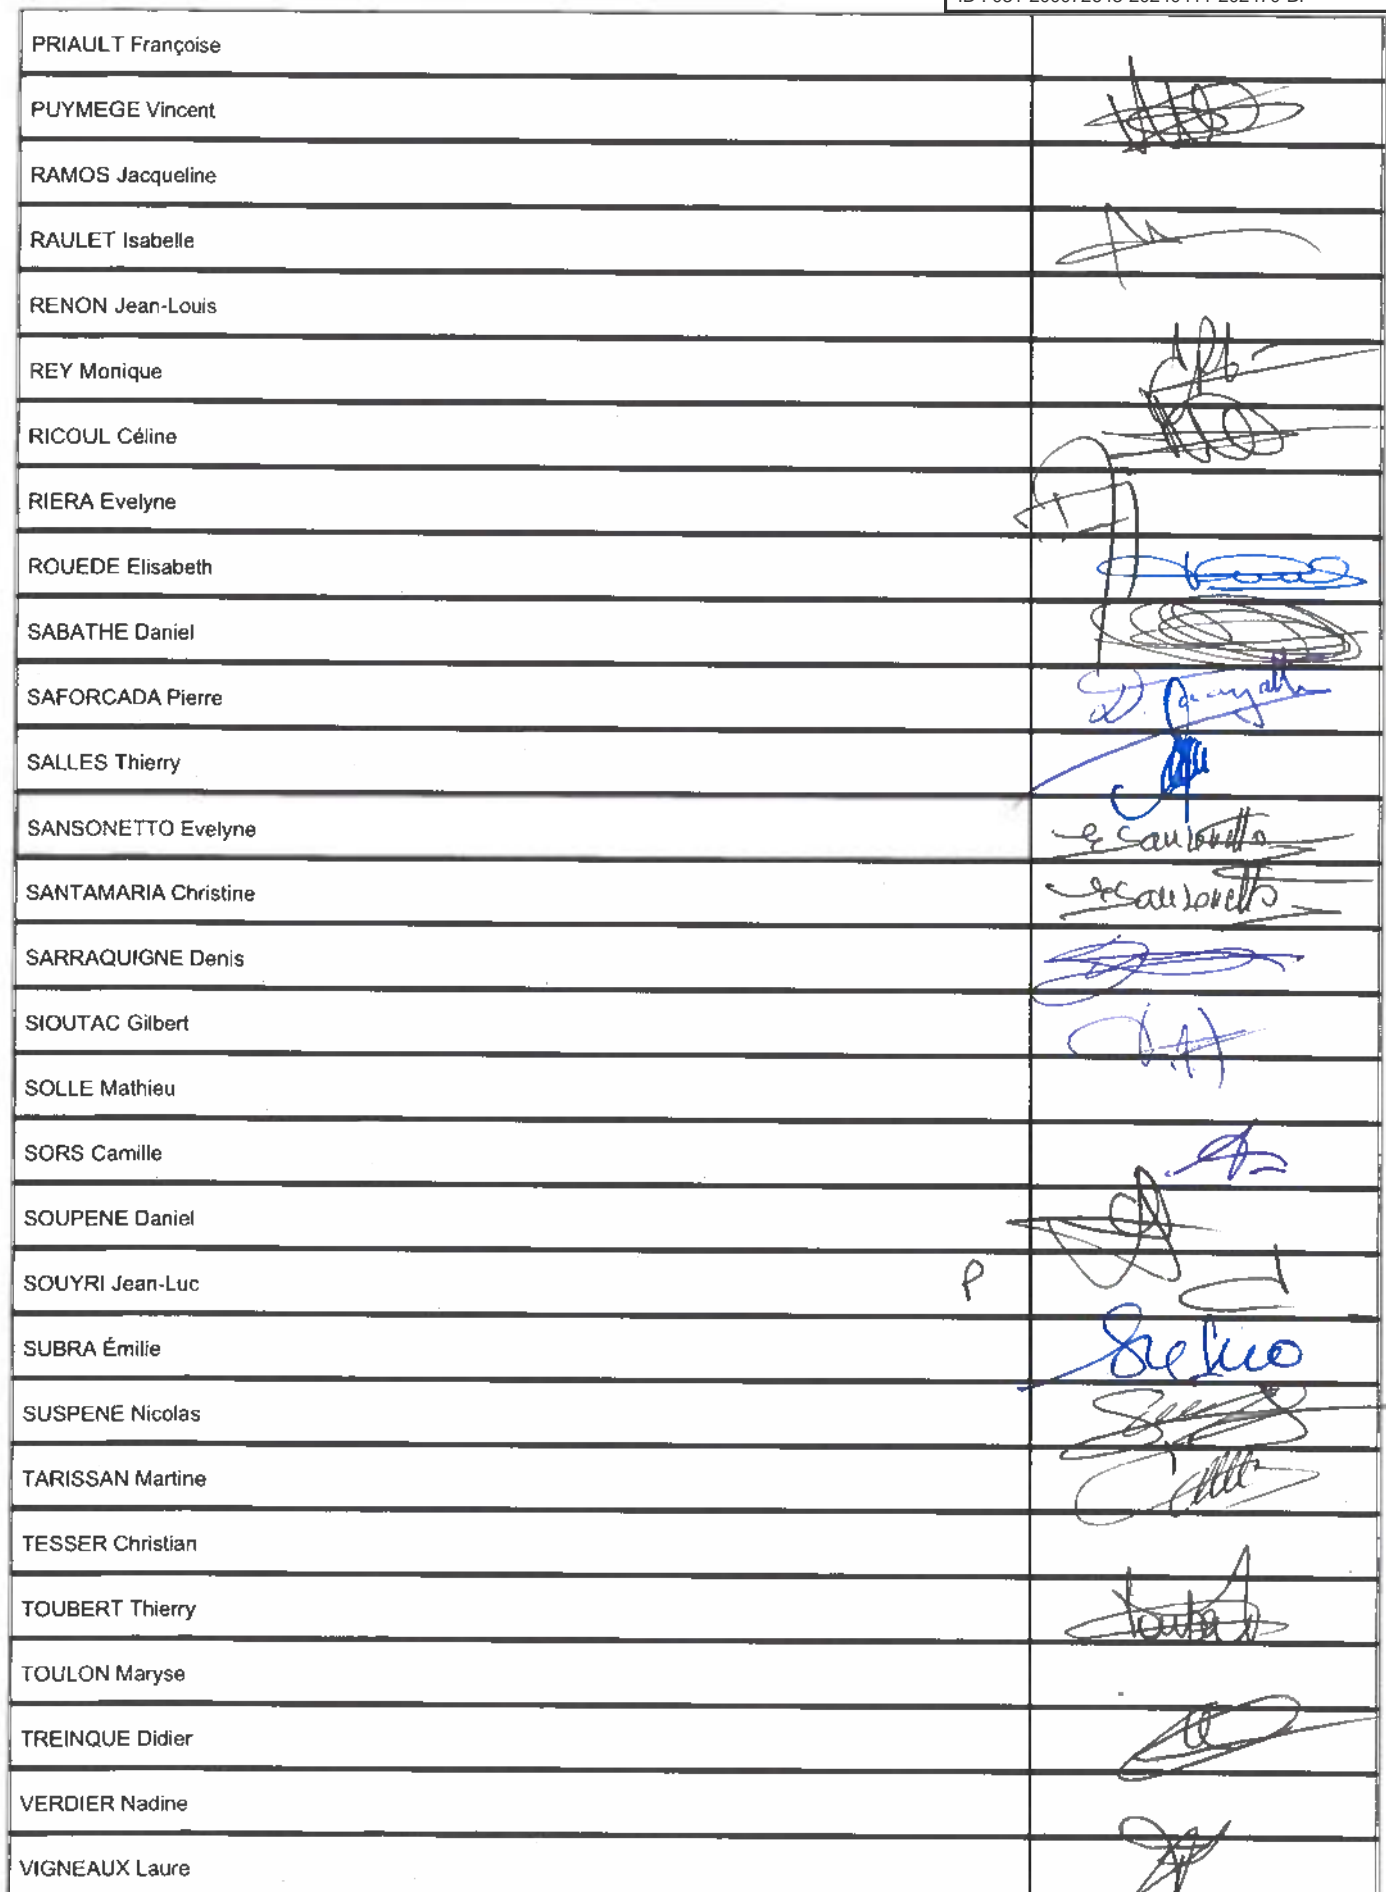 PRIAULT Françoise
PUYMEGE Vincent
RAMOS Jacqueline
RAULET Isabelle
RENON Jean-Louis
REY Monique
RICOUL Céline
RIERA Evelyne
ROUEDE Elisabeth
SABATHE Daniel
SAFORCADA Pierre
SALLES Thierry
SANSONETTO Evelyne E Sansonetto
SANTAMARIA Christine E Sansonetto
SARRAQUIGNE Denis
SIOUTAC Gilbert
SOLLE Mathieu
SORS Camille
SOUPENE Daniel
SOUYRI Jean-Luc P
SUBRA Émilie
SUSPENE Nicolas
TARISSAN Martine
TESSER Christian
TOUBERT Thierry Toubert
TOULON Maryse
TREINQUE Didier
VERDIER Nadine
VIGNEAUX Laure